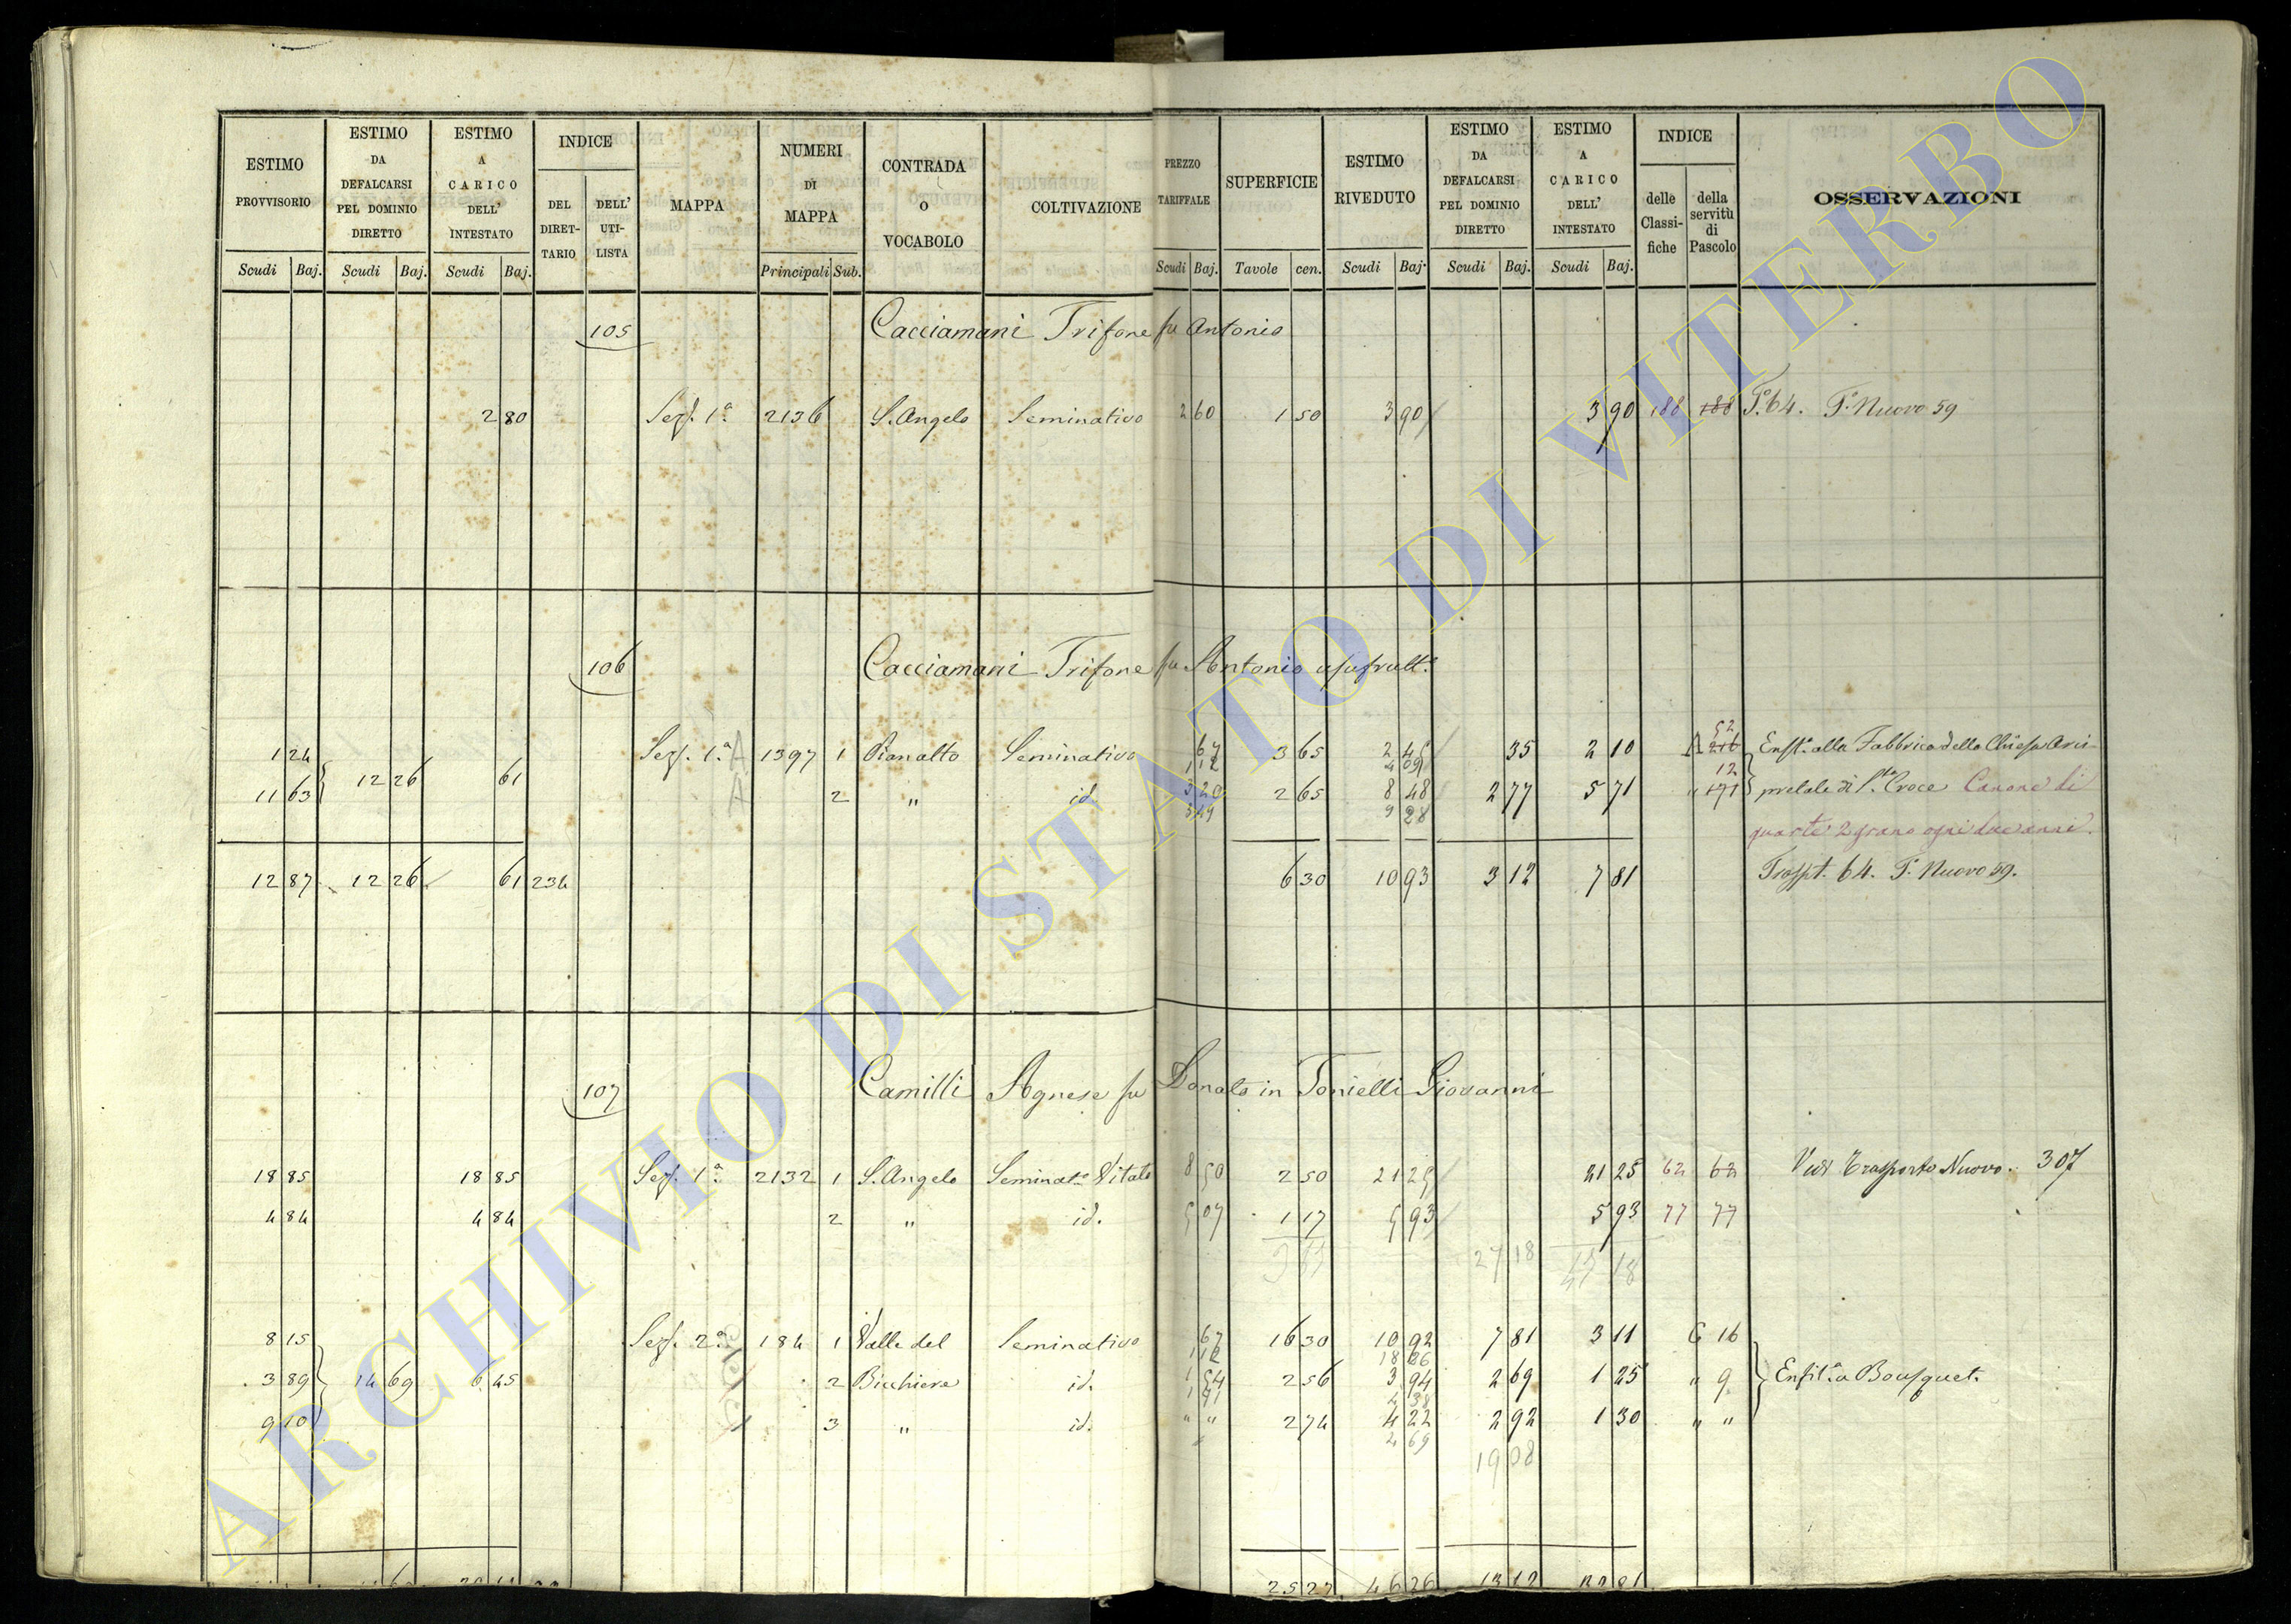 ESTIMO PROVVISORIO Scudi Baj.
ESTIMO DA DEFALCARSI PEL DOMINIO DIRETTO Scudi Baj.
ESTIMO A CARICO DELL' INTESTATO Scudi Baj.
INDICE DEL DIRET-TARIO DELL' UTI-LISTA
MAPPA
NUMERI DI MAPPA Principali Sub.
CONTRADA O VOCABOLO
COLTIVAZIONE
PREZZO TARIFFALE Scudi Baj.
SUPERFICIE Tavole cen.
ESTIMO RIVEDUTO Scudi Baj.
ESTIMO DA DEFALCARSI PEL DOMINIO DIRETTO Scudi Baj.
ESTIMO A CARICO DELL' INTESTATO Scudi Baj.
INDICE delle Classi-fiche della servitù di Pascolo
OSSERVAZIONI
105 Cacciamani Trifone fu Antonio
2 80 Sez. 1ª 2136 S. Angelo Seminativo 2 60 1 50 3 90 3 90 188 188 T. 64. T. Nuovo 59
106 Cacciamani Trifone fu Antonio usufrutt.
52
1 24 Sez. 1ª A 1397 1 Pianalto Seminativo 67 3 65 2 45 35 2 10 A 216 Enft. alla Fabbrica della Chiesa Arci-
12 26 61 1 12 4 09 12
11 63 A 2 " id. 3 20 2 65 8 48 2 77 5 71 " 171 pretale di S. Croce Canone di
3 49 9 28
quarte 2 grano ogni due anni.
12 87 12 26 61 234 6 30 10 93 3 12 7 81 Traspt. 64. T. Nuovo 59.
107 Camilli Agnese fu Donato in Tonielli Giovanni
18 85 18 85 Sez. 1ª 2132 1 S. Angelo Seminat. Vitato 8 50 2 50 21 25 21 25 62 62 Vedi Trasporto Nuovo. 307
4 84 4 84 2 " id. 5 07 1 17 5 93 5 93 77 77
27 18 18
8 15 Sez. 2ª 184 1 Valle del Seminativo 67 16 30 10 92 7 81 3 11 C 16
1 12 18 26
3 89 14 69 6 45 2 Bicchiere id. 1 54 2 56 3 94 2 69 1 25 " 9 Enfit. a Bousquet.
1 71 4 38
9 10 3 " id. " " 2 74 4 22 2 92 1 30 " "
4 69
19 08
25 27 46 26 13 12
ARCHIVIO DI STATO DI VITERBO